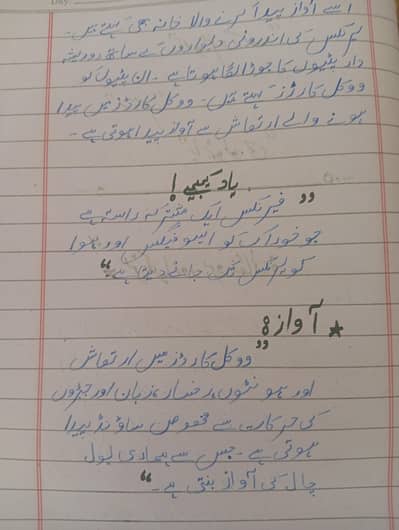 اسے آواز پیدا کرنے والا خانہ بھی کہتے ہیں۔
لیرنکس کی اندرونی دیواروں کے ساتھ دو ریشہ
دار پٹیوں کا جوڑا لگا ہوتا ہے۔ ان پٹیوں کو
ووکل کارڈز کہتے ہیں۔ ووکل کارڈز میں پیدا
ہونے والے ارتعاش سے آواز پیدا ہوتی ہے۔
یاد کیجیے!
"فیرنکس ایک مشترکہ راستہ ہے
جو خوراک کو ایسوفیگس اور ہوا
کو لیرنکس میں جانے دیتا ہے"
★ آواز:
"ووکل کارڈز میں ارتعاش
اور ہونٹوں، رخسار، زبان اور جبڑوں
کی حرکات سے مخصوص ساؤنڈ پیدا
ہوتی ہے۔ جس سے ہماری بول
چال کی آواز بنتی ہے۔"